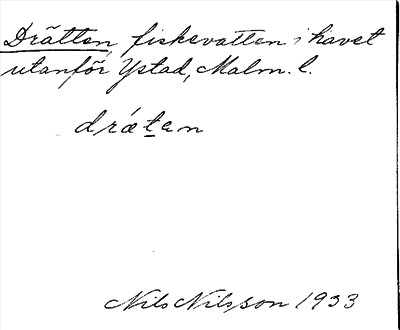 Drätten, fiskevatten i havet
utanför Ystad, Malm. l.
drǽt̲an
Nils Nilsson 1933